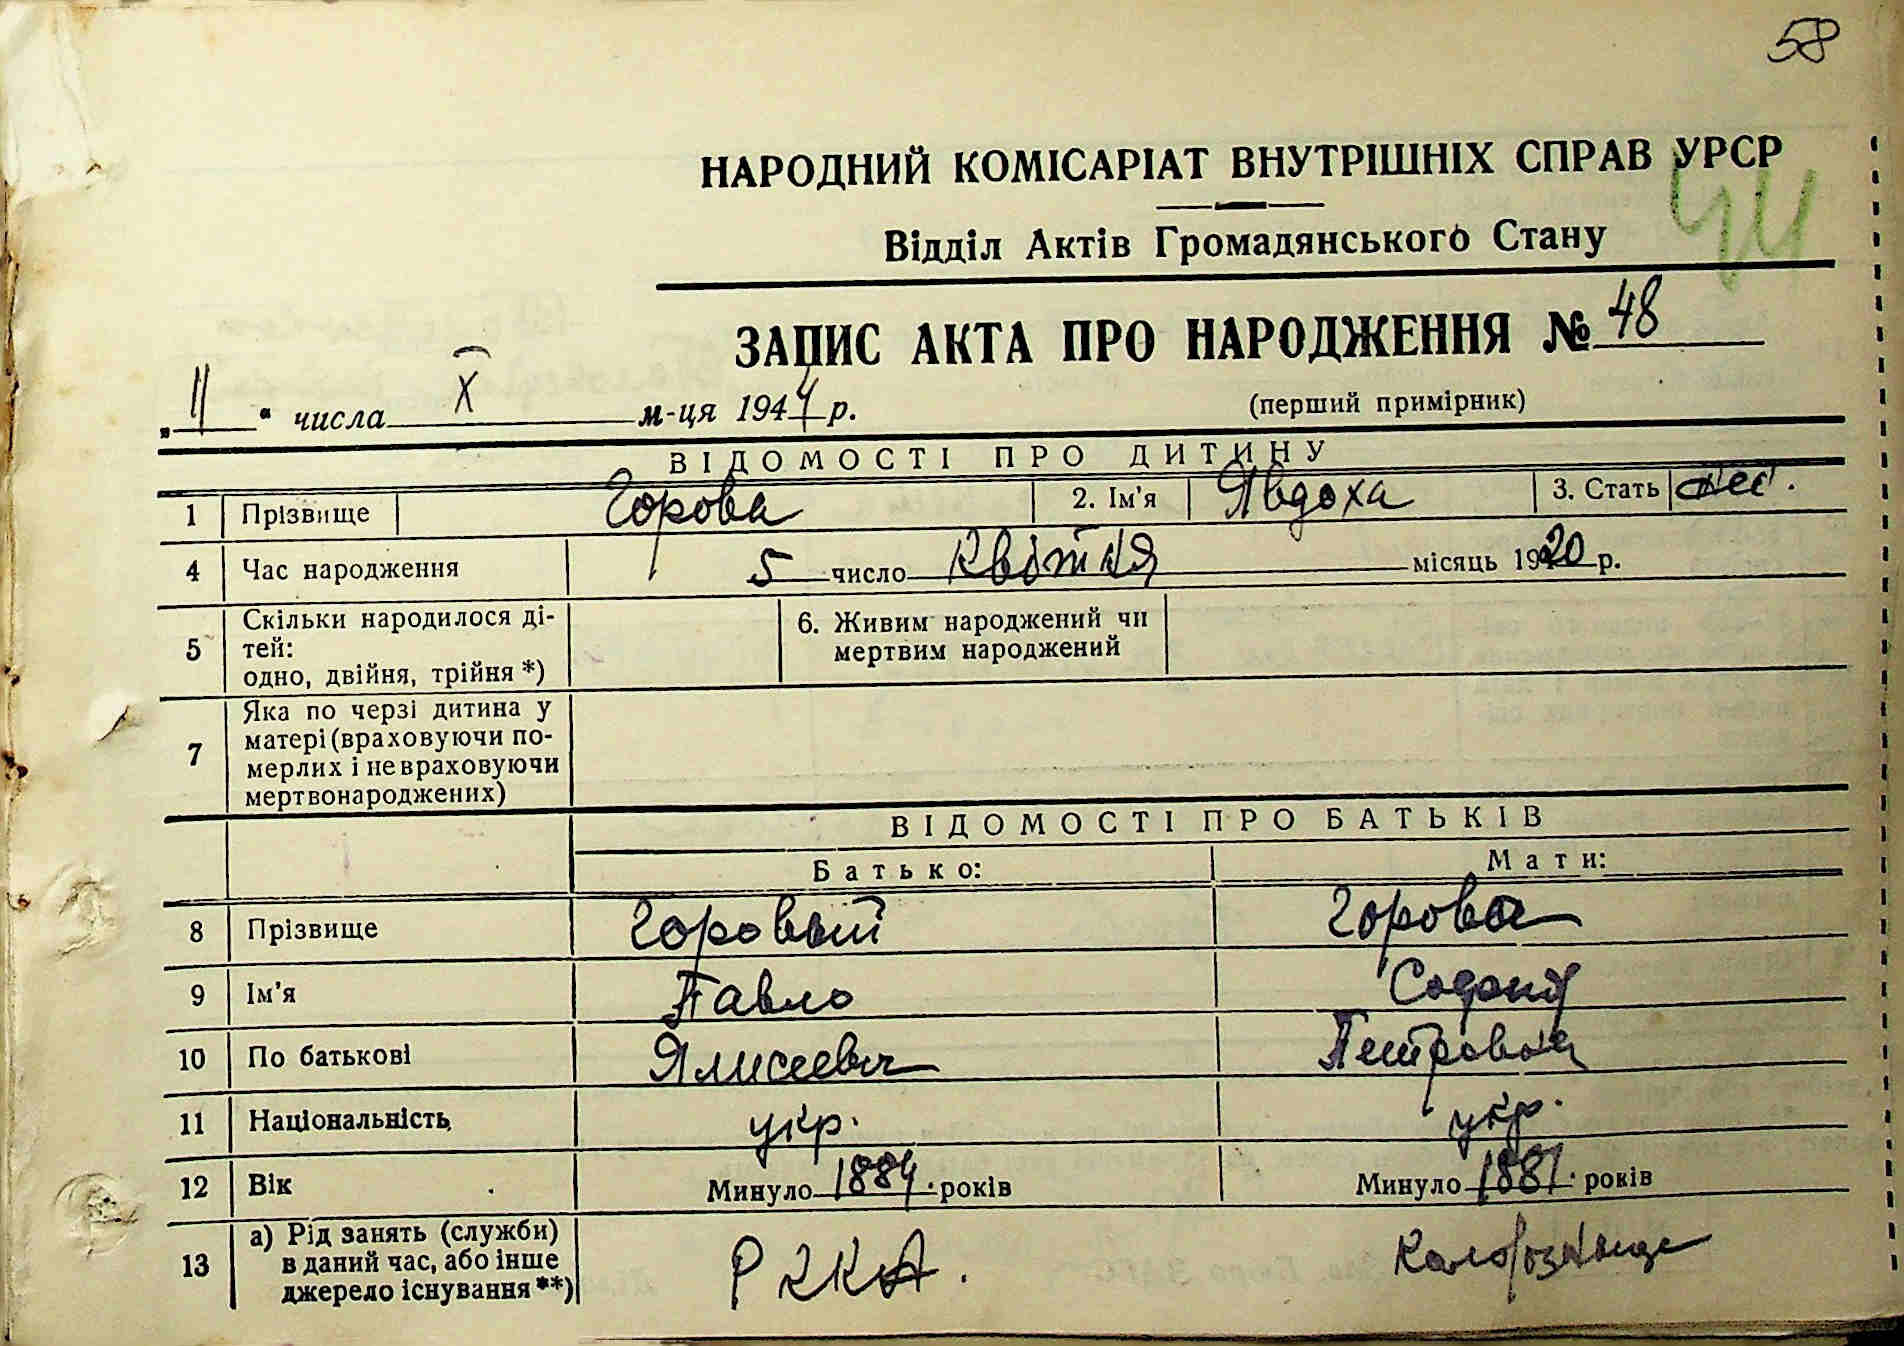 58
НАРОДНИЙ КОМІСАРІАТ ВНУТРІШНІХ СПРАВ УРСР
44
Відділ Актів Громадянського Стану
ЗАПИС АКТА ПРО НАРОДЖЕННЯ № 48
„ 11 “ числа X м-ця 1944 р.
(перший примірник)
ВІДОМОСТІ ПРО ДИТИНУ
1 Прізвище Горова 2. Ім'я Явдоха 3. Стать жес.
4 Час народження 5 число Квітня місяць 1920 р.
5 Скільки народилося ді-
тей:
одно, двійня, трійня *)
6. Живим народжений чи
мертвим народжений
7 Яка по черзі дитина у
матері (враховуючи по-
мерлих і не враховуючи
мертвонароджених)
ВІДОМОСТІ ПРО БАТЬКІВ
Батько: Мати:
8 Прізвище Горовый Горова
9 Ім'я Павло Софія
10 По батькові Ялисеевич Петровна
11 Національність укр. укр.
12 Вік Минуло 1884. років Минуло 1881. років
13 а) Рід занять (служби)
в даний час, або інше
джерело існування **)
РККА. Колгозниця